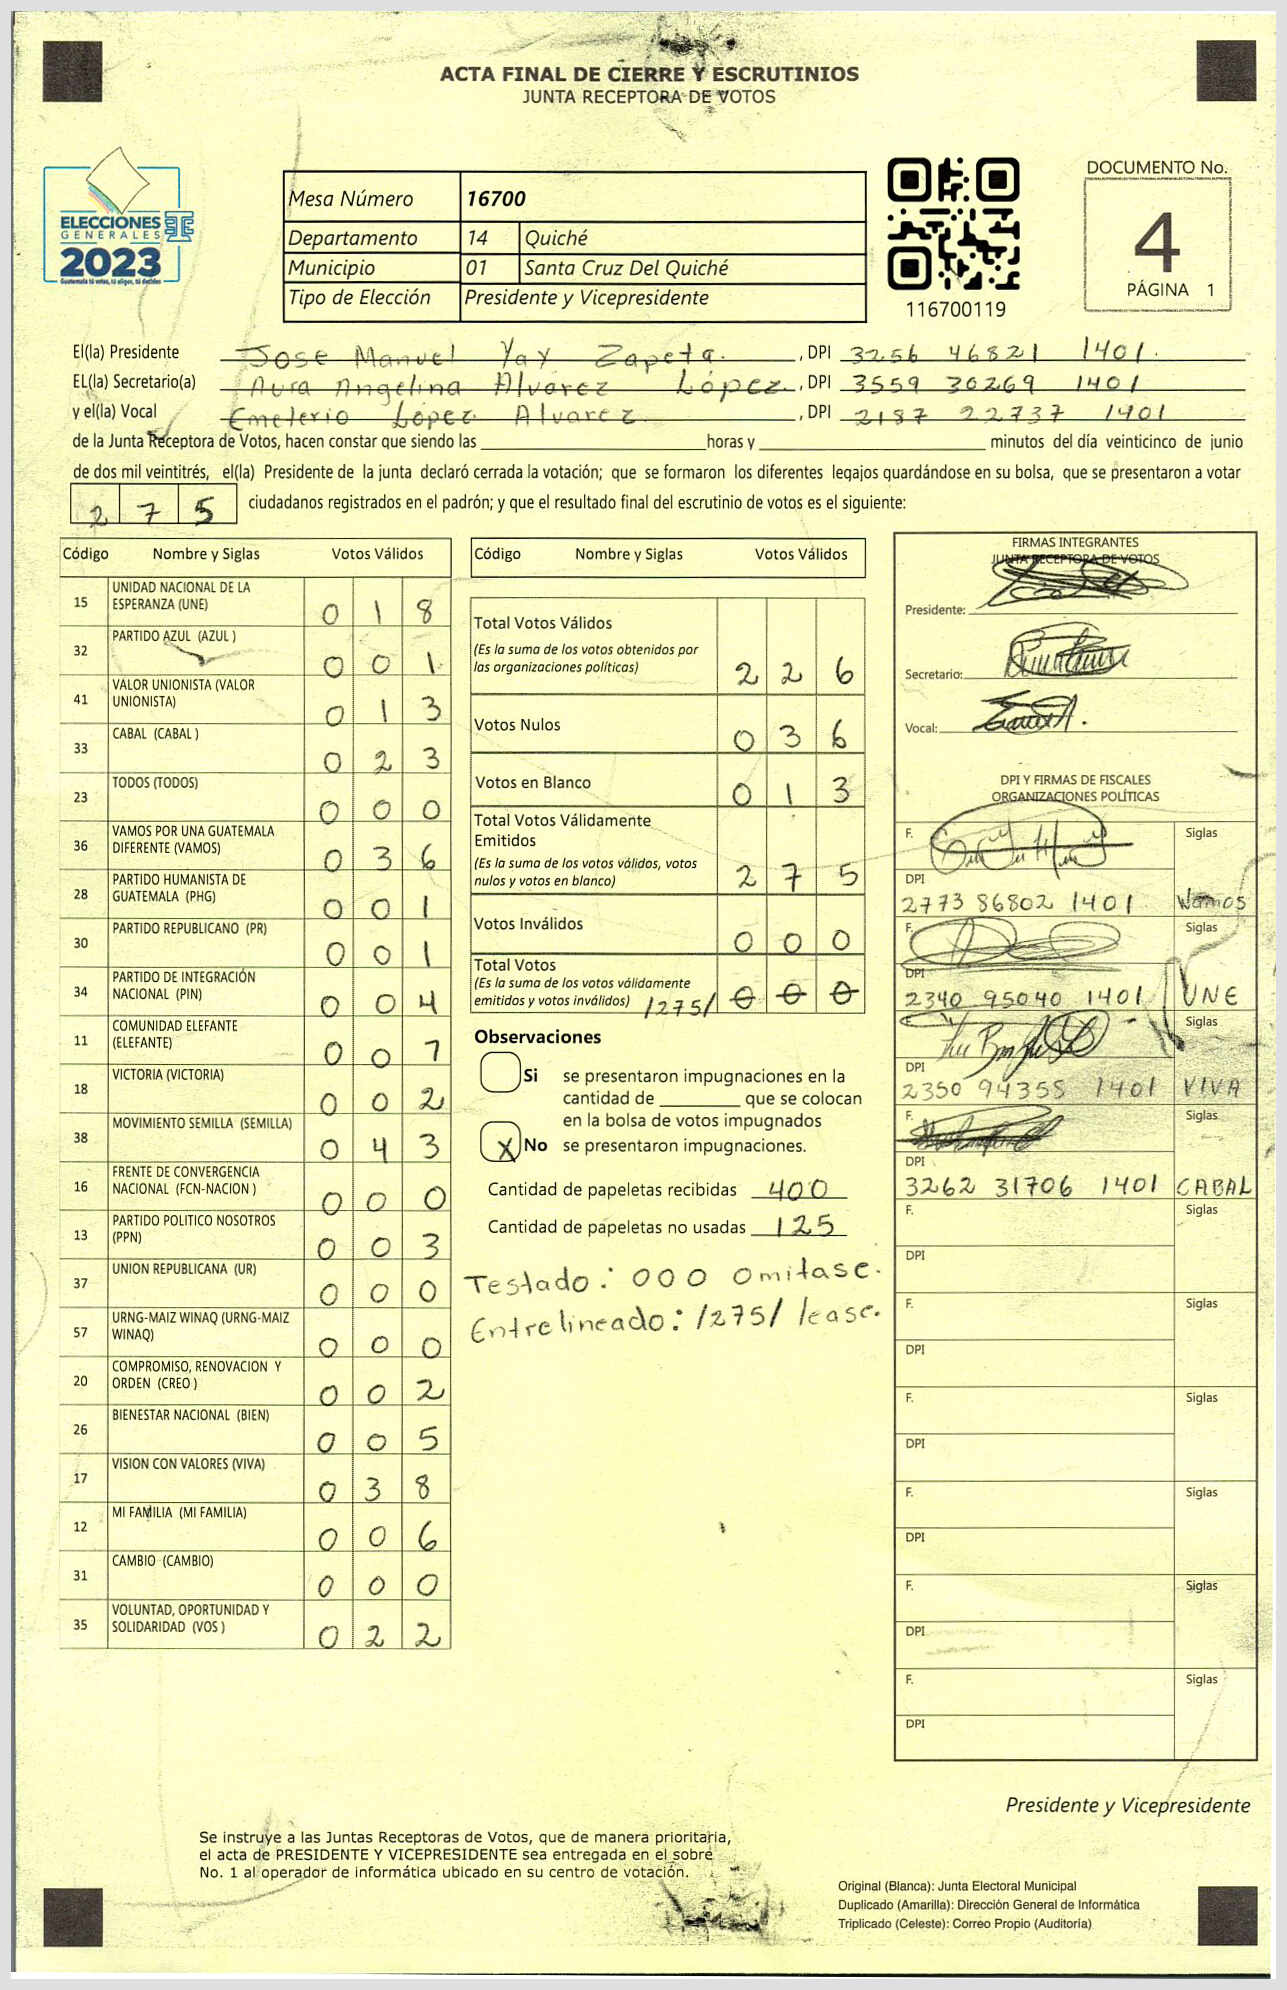 ACTA FINAL DE CIERRE Y ESCRUTINIOS
JUNTA RECEPTORA DE VOTOS
ELECCIONES
GENERALES
2023
Guatemala tú votas, tú eliges, tú decides
Mesa Número 16700
Departamento 14 Quiché
Municipio 01 Santa Cruz Del Quiché
Tipo de Elección Presidente y Vicepresidente
116700119
DOCUMENTO No.
4
PÁGINA 1
El(la) Presidente Jose Manuel Yay Zapeta. , DPI 3256 46821 1401.
EL(la) Secretario(a) Aura Angelina Alvarez López. , DPI 3559 30269 1401
y el(la) Vocal Emeterio López Alvarez , DPI 2187 22737 1401
de la Junta Receptora de Votos, hacen constar que siendo las horas y minutos del día veinticinco de junio
de dos mil veintitrés, el(la) Presidente de la junta declaró cerrada la votación; que se formaron los diferentes legajos guardándose en su bolsa, que se presentaron a votar
2 7 5 ciudadanos registrados en el padrón; y que el resultado final del escrutinio de votos es el siguiente:
Código Nombre y Siglas Votos Válidos
15 UNIDAD NACIONAL DE LA
ESPERANZA (UNE) 0 1 8
32 PARTIDO AZUL (AZUL ) 0 0 1
41 VALOR UNIONISTA (VALOR
UNIONISTA) 0 1 3
33 CABAL (CABAL ) 0 2 3
23 TODOS (TODOS) 0 0 0
36 VAMOS POR UNA GUATEMALA
DIFERENTE (VAMOS) 0 3 6
28 PARTIDO HUMANISTA DE
GUATEMALA (PHG) 0 0 1
30 PARTIDO REPUBLICANO (PR) 0 0 1
34 PARTIDO DE INTEGRACIÓN
NACIONAL (PIN) 0 0 4
11 COMUNIDAD ELEFANTE
(ELEFANTE) 0 0 7
18 VICTORIA (VICTORIA) 0 0 2
38 MOVIMIENTO SEMILLA (SEMILLA) 0 4 3
16 FRENTE DE CONVERGENCIA
NACIONAL (FCN-NACION ) 0 0 0
13 PARTIDO POLITICO NOSOTROS
(PPN) 0 0 3
37 UNION REPUBLICANA (UR) 0 0 0
57 URNG-MAIZ WINAQ (URNG-MAIZ
WINAQ) 0 0 0
20 COMPROMISO, RENOVACION Y
ORDEN (CREO ) 0 0 2
26 BIENESTAR NACIONAL (BIEN) 0 0 5
17 VISION CON VALORES (VIVA) 0 3 8
12 MI FAMILIA (MI FAMILIA) 0 0 6
31 CAMBIO (CAMBIO) 0 0 0
35 VOLUNTAD, OPORTUNIDAD Y
SOLIDARIDAD (VOS ) 0 2 2
Código Nombre y Siglas Votos Válidos
Total Votos Válidos
(Es la suma de los votos obtenidos por
las organizaciones políticas) 2 2 6
Votos Nulos 0 3 6
Votos en Blanco 0 1 3
Total Votos Válidamente
Emitidos
(Es la suma de los votos válidos, votos
nulos y votos en blanco) 2 7 5
Votos Inválidos 0 0 0
Total Votos
(Es la suma de los votos válidamente
emitidos y votos inválidos) /275/ 0 0 0
Observaciones
Si se presentaron impugnaciones en la
cantidad de que se colocan
en la bolsa de votos impugnados
X No se presentaron impugnaciones.
Cantidad de papeletas recibidas 400
Cantidad de papeletas no usadas 125
Testado: 000 Omitase.
Entrelineado: /275/ lease.
FIRMAS INTEGRANTES
JUNTA RECEPTORA DE VOTOS
Presidente:
Secretario:
Vocal:
DPI Y FIRMAS DE FISCALES
ORGANIZACIONES POLÍTICAS
F. Siglas
DPI
2773 86802 1401 Vamos
F. Siglas
DPI
2340 95040 1401 UNE
F. Siglas
DPI
2350 94358 1401 VIVA
F. Siglas
DPI
3262 31706 1401 CABAL
F. Siglas
DPI
F. Siglas
DPI
F. Siglas
DPI
F. Siglas
DPI
F. Siglas
DPI
F. Siglas
DPI
Presidente y Vicepresidente
Se instruye a las Juntas Receptoras de Votos, que de manera prioritaria,
el acta de PRESIDENTE Y VICEPRESIDENTE sea entregada en el sobre
No. 1 al operador de informática ubicado en su centro de votación.
Original (Blanca): Junta Electoral Municipal
Duplicado (Amarilla): Dirección General de Informática
Triplicado (Celeste): Correo Propio (Auditoría)